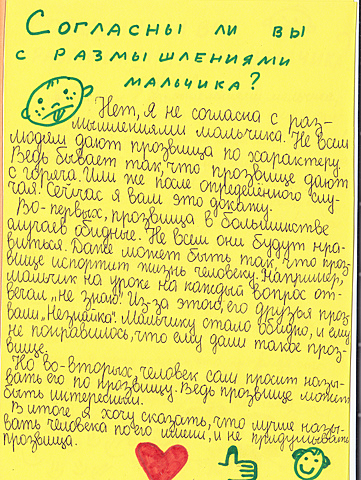 Согласны ли вы
с размышлениями
мальчика?
Нет, я не согласна с раз-
мышлениями мальчика. Не всем
людям дают прозвища по характеру.
Ведь бывает так, что прозвище дают
с горяча. Или же после определённого слу-
чая. Сейчас я вам это докажу.
Во-первых, прозвища в большинстве
случаев обидные. Не всем они будут нра-
виться. Даже может быть так, что проз-
вище испортит жизнь человеку. Например,
мальчик на уроке на каждый вопрос от-
вечал „не знаю". Из-за этого, его друзья проз-
вали „Незнайка". Мальчику стало обидно, и ему
не понравилось, что ему дали такое проз-
вище.
Но во-вторых, человек сам просит назы-
вать его по прозвищу. Ведь прозвище может
быть интересным.
В итоге я хочу сказать, что лучше назы-
вать человека по его имени, и не придумывать
прозвища.